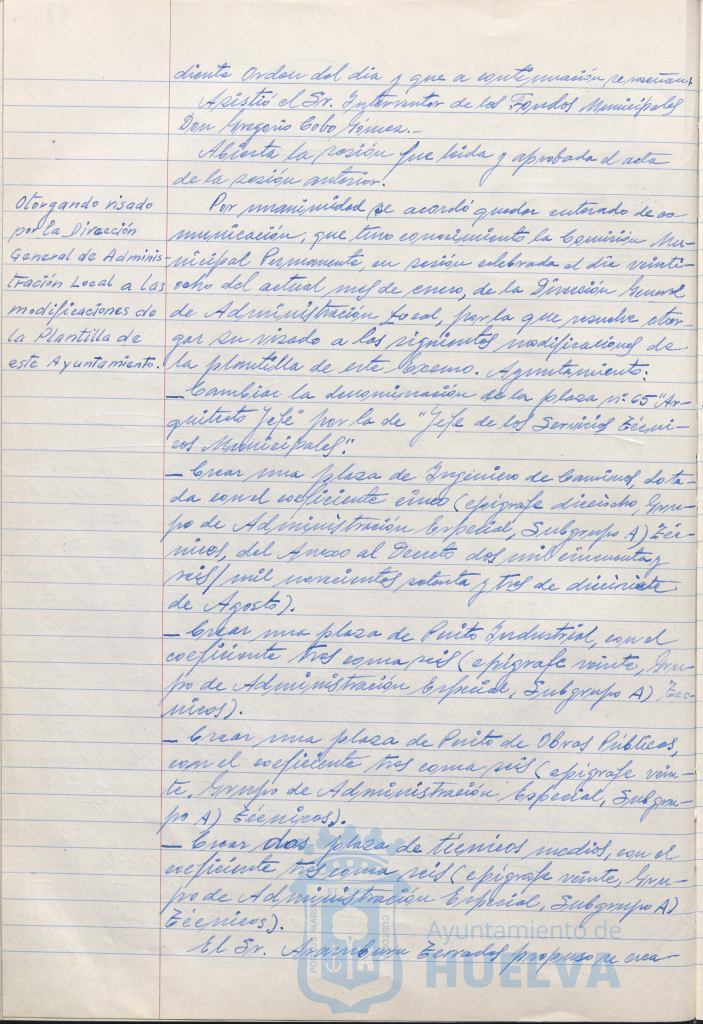 diente Orden del día y que a continuación se reseñan:
Asistió el Sr. Interventor de los Fondos Municipales
Don Gregorio Cobo Gómez.-
Abierta la sesión fue leida y aprobada el acta
de la sesión anterior.
Otorgando visado
por la Dirección
General de Adminis-
tración Local a las
modificaciones de
la Plantilla de
este Ayuntamiento.
Por unanimidad se acordó quedar enterado de co-
municación, que tuvo conocimiento la Comisión Mu-
nicipal Permanente, en sesión celebrada el día veinti-
ocho del actual mes de enero, de la Dirección General
de Administración Local, por la que resuelve otor-
gar su visado a las siguientes modificaciones de
la plantilla de este Excmo. Ayuntamiento:
- Cambiar la denominación de la plaza nº 65 "Ar-
quitecto Jefe" por la de "Jefe de los Servicios Técni-
cos Municipales".
- Crear una plaza de Ingeniero de Caminos, dota-
da con el coeficiente cinco (epígrafe dieciocho, Gru-
po de Administración Especial, Subgrupo A) Téc-
nicos, del Anexo al Decreto dos mil cincuenta y
seis/mil novecientos setenta y tres de diecisiete
de Agosto).
- Crear una plaza de Perito Industrial, con el
coeficiente tres coma seis (epígrafe veinte, Gru-
po de Administración Especial, Subgrupo A) Téc-
nicos).
- Crear una plaza de Perito de Obras Públicas,
con el coeficiente tres coma seis (epígrafe vein-
te, Grupo de Administración Especial, Subgru-
po A) Técnicos).
- Crear dos plaza de técnicos medios, con el
coeficiente tres coma seis (epígrafe veinte, Gru-
po de Administración Especial, Subgrupo A)
Técnicos).
El Sr. Aramburu Terrades propuso se crea-
Ayuntamiento de
HUELVA